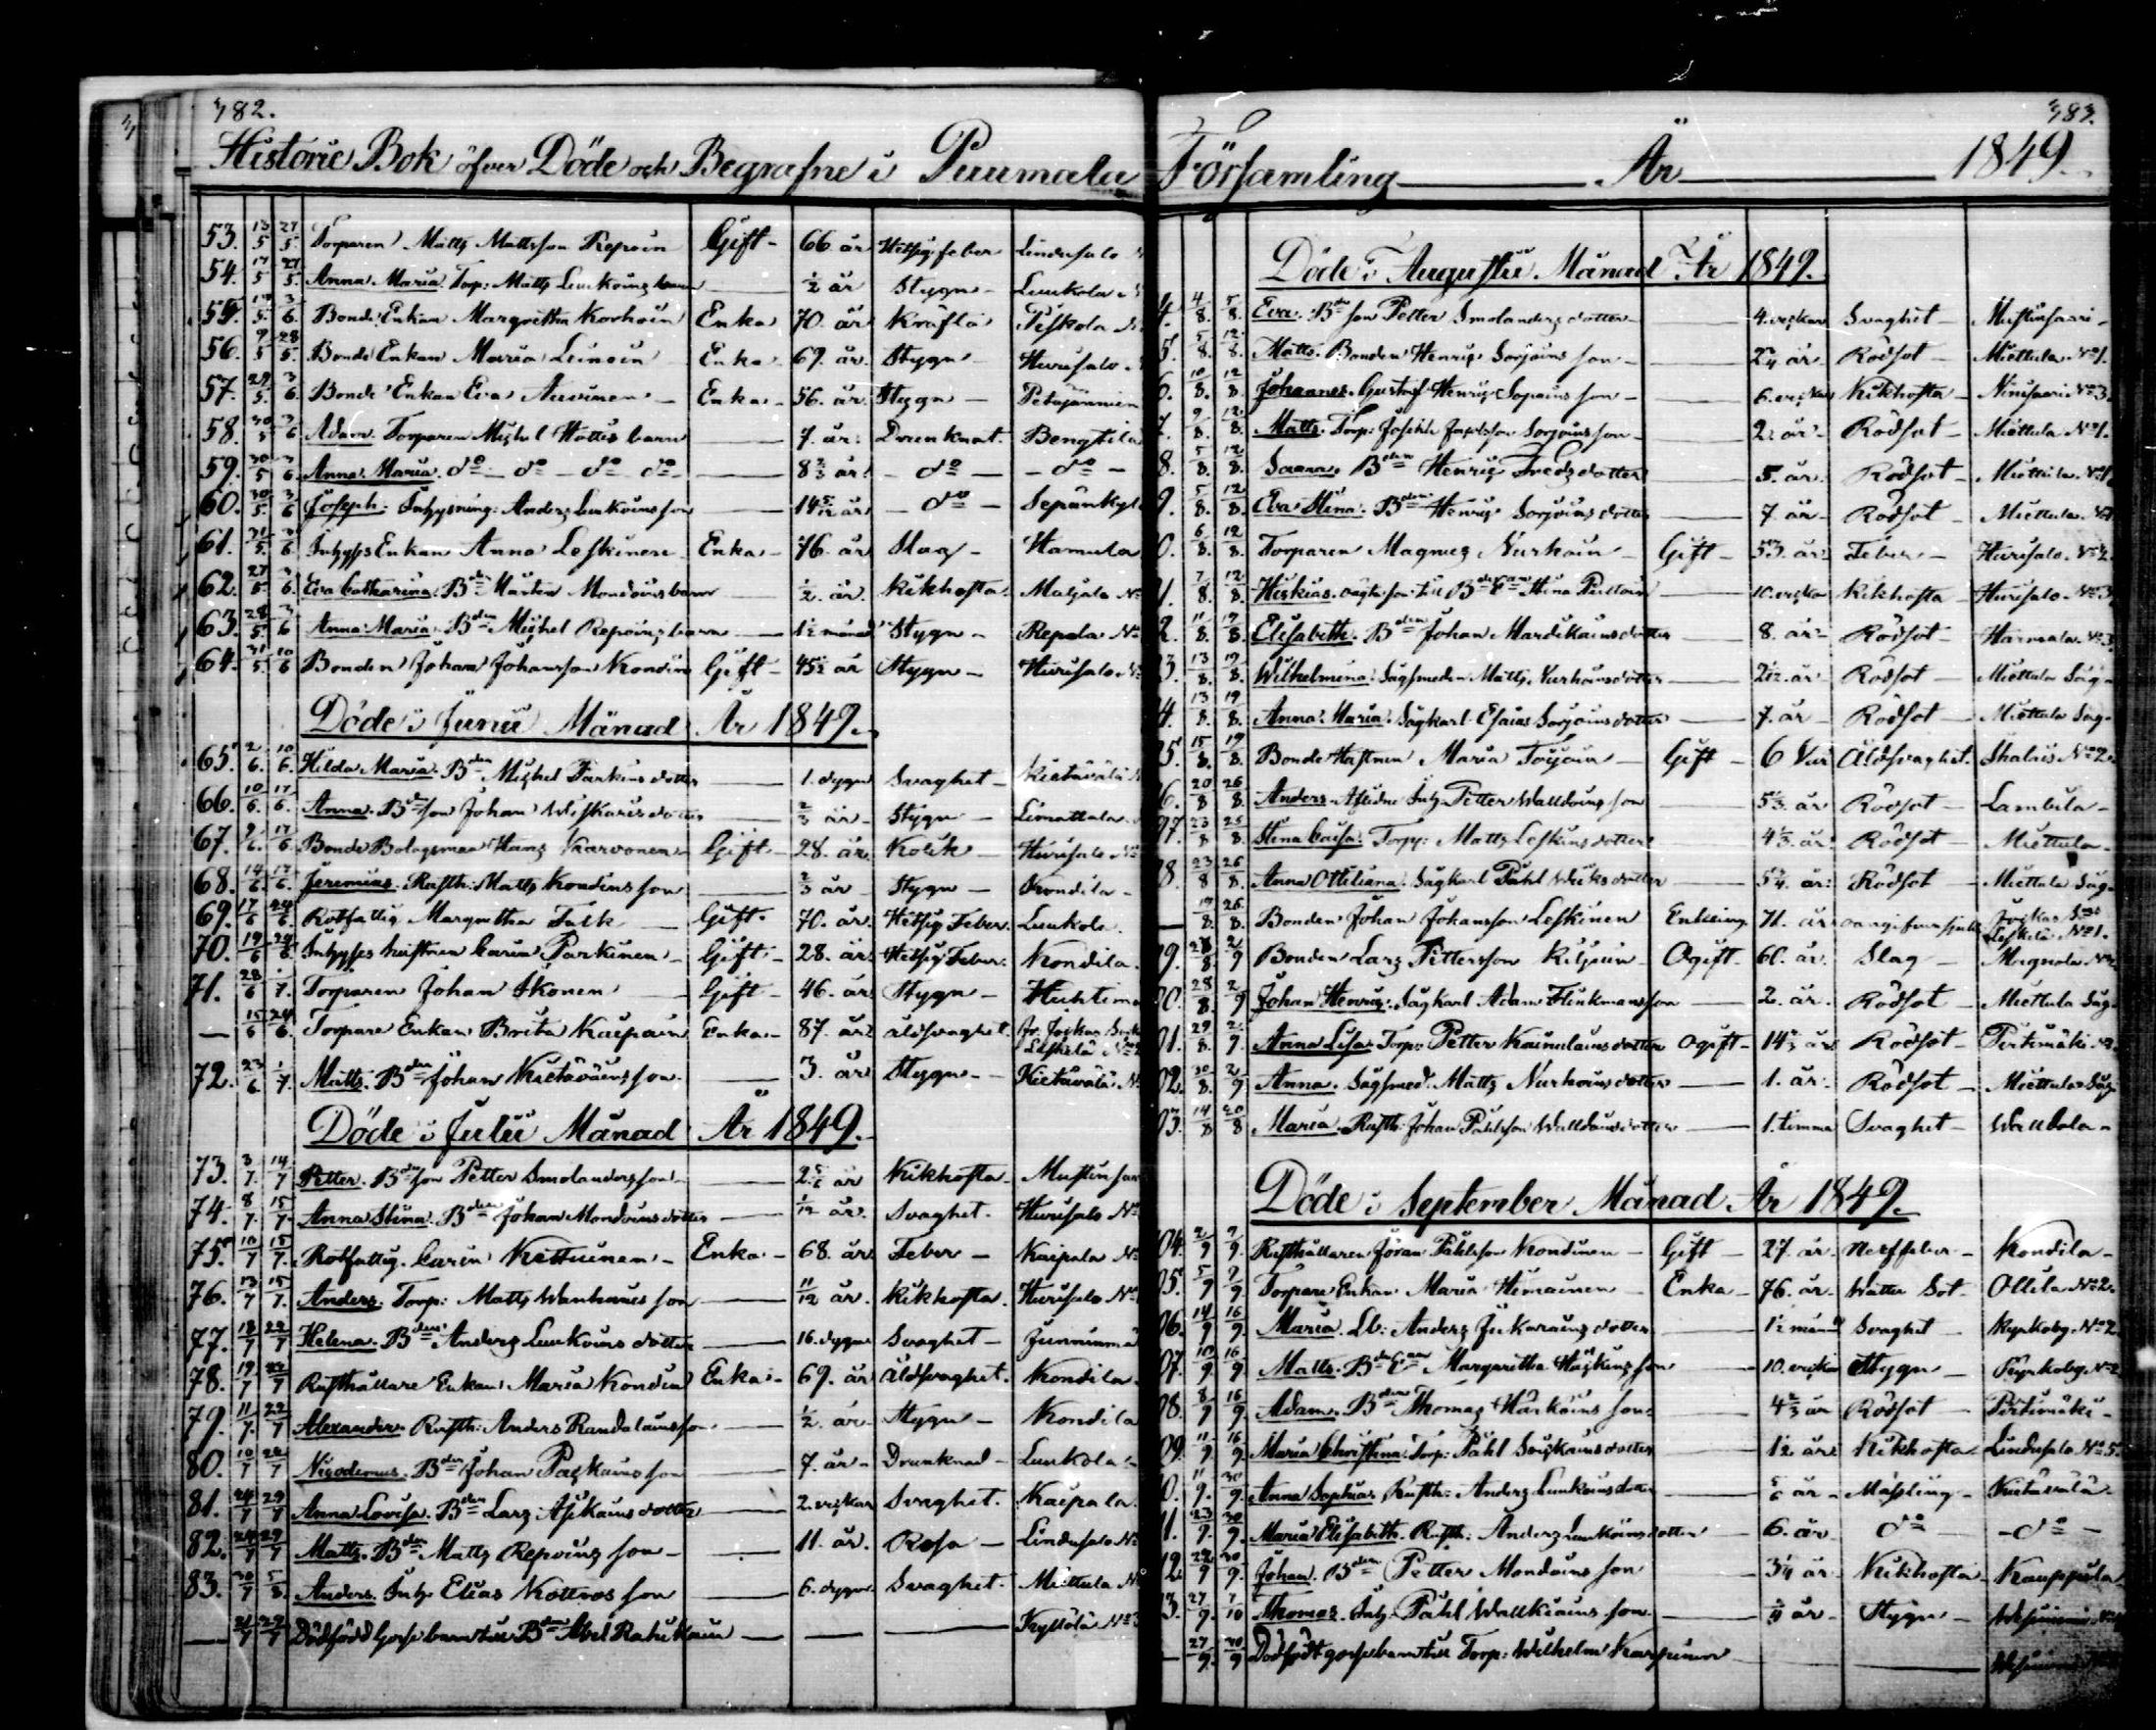 382.
Historie Bok öfver Döde och Begrafne i Puumala
53. 13/5 27/5. Torparen Matts Mattsson Repoin Gift - 66 år Hetsig feber Lindusalo
54. 17/5 27/5. Anna Maria Torp: Matts Luukoins barn ½ år Stygn - Luukola
55. 3/6. Bonde Enkan Margretha Korhoin Enka 70. år Kräfta Piskola
56. 9/5 28/5. Bonde Enkan Maria Leinoin Enka 69. år. Stygn - Hurusalo
57. 29/5. 3/6. Bonde Enkan Eva Auvinen - Enka - 56. år. Stygn - Petäjäniemi
58. 30/5 3/6 Adam. Torparen Michel Hottis barn 7. år. Drunknat. Bengtilä
59. 30/5 3/6 Anna Maria. do - do - do do 8⅔ år. - do - - do -
60. 30/5. 3/6 Joseph: Inhysning: Anders Luukoins son 14 5/12 år - do - Sepänkyl
61. 31/5. 3/6 Inhyses Enkan Anna Leskinen Enka - 76. år Slag - Hamula
62. 27/5. 3/6. Eva Catharina. Bden Mårten Mondoins barn ½. år. Kikhosta. Matjala No
63. 28/5. 3/6 Anna Maria. Bden Michel Repoins barn 1½ månad Stygn - Repola No
64. 31/5. 10/6 Bonden Johan Johansson Kondin Gift - 45½ år Stygn - Hurusalo
Döde i Junii Månad År 1849.
65. 2/6. 10/6. Hilda Maria. Bden Michel Parkins dotter 1. dygn Svaghet - Kietävälä
66. 10/6. 17/6. Anna. Bdeson Johan Wiskaris dotter ⅔ år - Stygn - Limattala
67. 9/6. 17/6. Bonde Bolagsman Hans Karvonen - Gift - 28. år. Kolik - Hurusalo No
68. 14/6. 17/6. Jeremias. Rusth: Matts Kondins son ⅔ år Stygn - Kondila -
69. 17/6 24/6. Rotfattig Margretha Falk Gift. 70. år. Hetsig Feber. Luukola.
70. 19/6 24/6. Inhyses hustrun Carin Parkinen - Gift - 28. år. Hetsig Feber. Kondila.
71. 28/6 1/7. Torparen Johan Ikonen Gift - 46. år Stygn - Hechtima
— 15/6 24/6. Torpare Enkan Brita Kaipain Enka - 87. år. åldsvaghet. fr. Jockas Sock
Leskelä
72. 23/6 1/7. Matts. Bden Johan Kietäväins son. 3. år Stygn - Kietävälä. No
Döde i Julii Månad År 1849.
73. 3/7. 14/7 Petter. Bdeson Petter Smolanders son - Kikhosta - Mustinsaa
74. 8/7. 15/7. Anna Stina. Bden Johan Mondoins dotter 1/12 år. Svaghet. Hurusalo No
75. 10/7 15/7. Rotfattig. Carin Kettuinen - Enka - 68. år. Feber - Kaipala No
76. 13/7 15/7. Anders. Torp: Matts Wanhanis son 11/12 år. Kikhosta. Hurusalo No
77. 18/7 22/7 Helena. Bden Anders Luukoins dotter 16. dygn. Svaghet - Junninmä
78. 19/7 22/7 Rusthållare Enkan Maria Kondin Enka - 69. år åldsvaghet. Kondila.
79. 11/7. 22/7 Alexander. Rusth: Anders Randalains son ½. år. Stygn - Kondila
80. 10/7 22/7 Nicodemus. Bden Johan Packains son 7. år - Drunknad - Luukola -
81. 24/7 29/7 Anna Lovisa. Bden Lars Asikains dotter 2. veckor Svaghet. Kaipala.
82. 24/7 29/7 Matts. Bden Matts Repoins son - 11. år. Rosa - Lindusalo No
83. 30/7 5/8. Anders. Inh. Elias Kottros son 6. dygn. Svaghet. Miettula No
— 21/7 29/7 Dödfödd Gosse barn till Bden Abel Rahikain Kyllölä No 3
383.
Församling År 1849.
Döde i Augusti Månad År 1849.
4. 4/8. 5/8. Eva. Bdeson Petter Smolanders dotter - 4. veckor Svaghet - Mustinsaari -
5. 5/8. 12/8. Matts. Bonden Henrics Sorjoins son - 2¾ år. Rödsot - Miettula No 1.
6. 10/8. 12/8. Johannes. Gustaf Henrics Sopains son - 6. veckor Kikhosta - Niinisaari No 3.
7. 9/8. 12/8. Matts. Torp: Joseph Josephsson Sorjoins son - 2. år. Rödsot - Miettula No 1.
8. 5/8. 12/8. Sanna. Bden Henrics dotter 5. år. Rödsot - Miettula. No 1.
9. 5/8. 12/8. Eva Stina. Bden Henrics Sorjoins dotter 7. år - Rödsot - Miettula.
0. 6/8. 12/8. Torparen Magnus Nurhoin - Gift - 53. år. Feber - Hurusalo. No 2.
1. 7/8. 12/8. Hiskias. oägta son till Bde Stina 10. veckor Kikhosta Hurusalo. No 3.
2. 11/8. 19/8. Elisabeth. Bden Johan Mardikains dotter 8. år - Rödsot - Harmala. No 3
3. 13/8. 19/8. Wilhelmina. Sågsmeden Matts Nurhoins dotter - 2½. år - Rödsot - Miettula Såg -
4. 13/8. 19/8. Anna Maria. Sågkarl Esaias Sorjoins dotter 7. år - Rödsot - Miettula Såg -
5. 15/8. 19/8. Bonde Hustrun Maria Toijoin - Gift - Åldsvaghet. No 2.
6. 20/8 26/8. Anders. Aflidne Inh. Petter Walldoins son Rödsot - Lambila -
97. 23/8 26/8. Stina Caisa. Torp: Matts Leskins dotter 4⅓. år: Rödsot - Miettula -
8. 23/8 26/8. Anna Ottiliana. Sågkarl Påhl dotter 5¾. år: Rödsot - Miettula Såg -
— 19/8. 26/8. Bonden Johan Johansson Leskinen Enkling 71. år. Jockas Sn
Leskelä No 1.
9. 28/8. 2/9 Bonden Lars Pettersson Kiljuin Ogift - 60. år. Slag - Magnola
00. 28/8. 2/9 Johan Henrics. Sågkarl Adam Flinkmans son 2. år. Rödsot - Miettula Såg.
01. 29/8. 2/9. Anna Lisa. Torp: Petter Kainulains dotter Ogift - 14⅔ år Rödsot - Pirtimäki
02. 30/8. 2/9 Anna. Sågsmed. Matts Nurhoins dotter 1. år. Rödsot - Miettula Såg.
03. 14/8 20/8 Maria. Rusth: Johan Påhlsson Walldoins dotter 1. timma Svaghet - Walldola -
Döde i September Månad År 1849.
04. 2/9 9/9. Rusthållaren Jöran Påhlsson Kondinen - Gift - 27. år. Nerffeber - Kondila -
05. 5/9 9/9 Torpare Enkan Maria Himainen - Enka - 76. år. Watten Sot - Ollila No 2.
06. 14/9 16/9. Maria. Lb: Anders Jukarains dotter 1½ mån Svaghet - Kyrkoby. No 2
07. 10/9. 16/9 Matts. Margaretha Häckins son 10. veckor Stygn - Kyrkoby. No 2
08. 8/9 16/9. Adam. Bden Thomas Härkäins son. 4⅔ år Rödsot - Pirtimäki -
09. 11/9 16/9. Maria Christina. Torp: Påhl dotter 1½. år. Kikhosta Lindusalo No 5.
0. 11/9. 30/9. Anna Sophia. Rusth: Anders Luukoins dotter 5/6 år - Mäßling - Kietävälä.
1. 23/9. 30/9. Maria Elisabeth. Rusth: Anders Luukoins dotter - 6. år. do - do -
2. 22/9 30/9. Johan. Bden Petter Mondoins son 3¼ år Kikhosta - Kauppila
3. 27/9. 7/10 Thomas. Inh. Påhl Wallkiains son ¼ år - Stygn -
— 27/9. 30/9 Dödfödt gossebarn till Torp: Wilhelm Karppinen